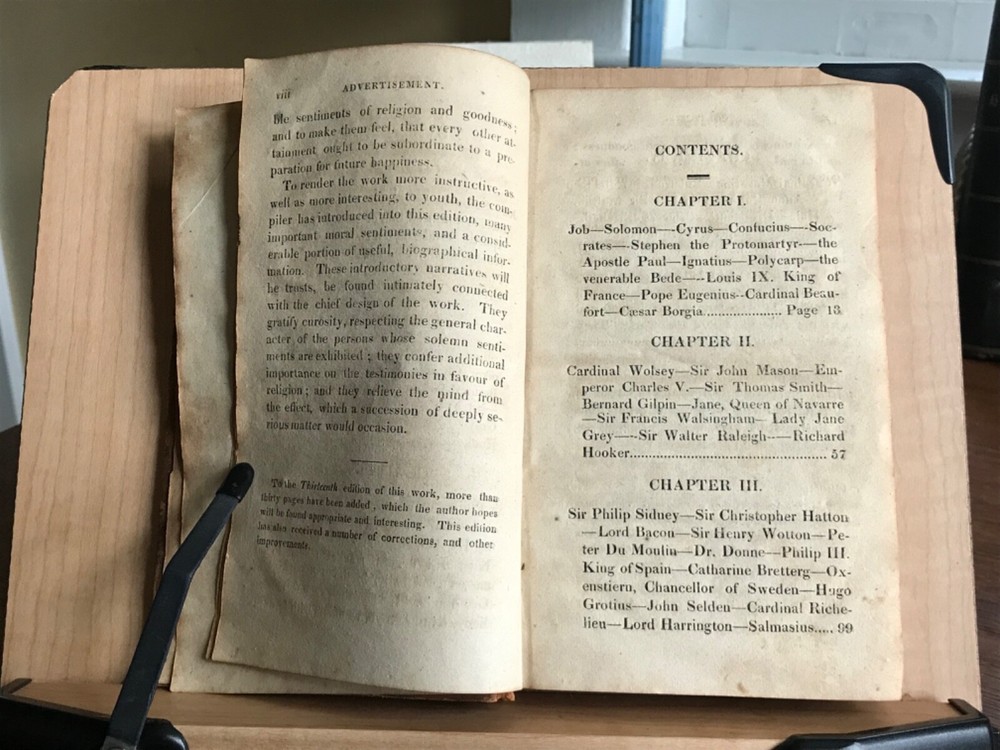 viii
ADVERTISEMENT.
ble sentiments of religion and goodness;
and to make them feel, that every other at-
tainment ought to be subordinate to a pre-
paration for future happiness.
To render the work more instructive, as
well as more interesting, to youth, the com-
piler has introduced into this edition, many
important moral sentiments, and a consid-
erable portion of useful, biographical infor-
mation. These introductory narratives will
he trusts, be found intimately connected
with the chief design of the work. They
gratify curosity, respecting the general char-
acter of the persons whose solemn senti-
ments are exhibited ; they confer additional
importance on the testimonies in favour of
religion ; and they relieve the mind from
the effect, which a succession of deeply se-
rious matter would occasion.
To the Thirteenth edition of this work, more than
thirty pages have been added, which the author hopes
will be found appropriate and interesting. This edition
has also received a number of corrections, and other
improvements.
CONTENTS.
CHAPTER I.
Job—Solomon—Cyrus—Confucius—Soc-
rates—Stephen the Protomartyr—the
Apostle Paul—Ignatius—Polycarp—the
venerable Bede—Louis IX. King of
France—Pope Eugenius—Cardinal Beau-
fort—Cæsar Borgia..................... Page 13
CHAPTER II.
Cardinal Wolsey—Sir John Mason—Em-
peror Charles V.—Sir Thomas Smith—
Bernard Gilpin—Jane, Queen of Navarre
—Sir Francis Walsingham—Lady Jane
Grey—Sir Walter Raleigh—Richard
Hooker................................................ 57
CHAPTER III.
Sir Philip Sidney—Sir Christopher Hatton
—Lord Bacon—Sir Henry Wotton—Pe-
ter Du Moulin—Dr. Donne—Philip III.
King of Spain—Catharine Bretterg—Ox-
enstiern, Chancellor of Sweden—Hugo
Grotius—John Selden—Cardinal Riche-
lieu—Lord Harrington—Salmasius..... 99